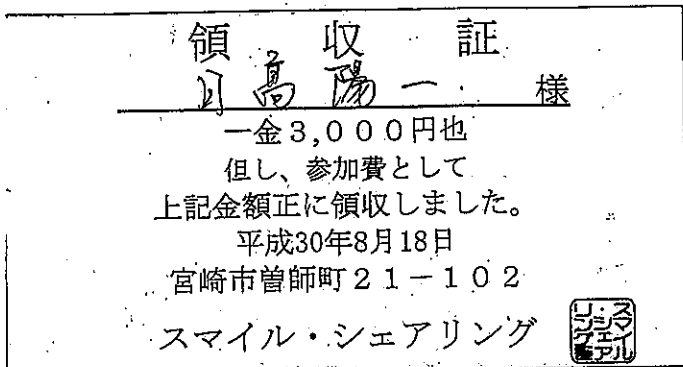 領収証
日高陽一 様
一金3,000円也
但し、参加費として
上記金額正に領収しました。
平成30年8月18日
宮崎市曽師町21-102
スマイル・シェアリング
スマイル
・シェア
リング